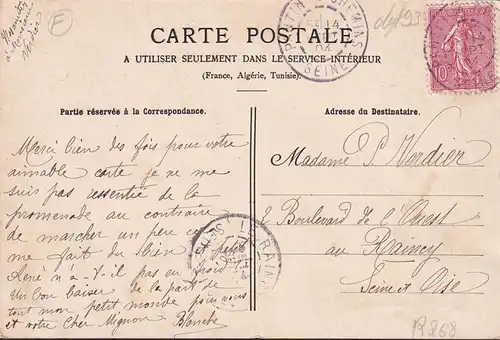 CARTE POSTALE
A UTILISER SEULEMENT DANS LE SERVICE INTÉRIEUR
(France, Algérie, Tunisie).
Partie réservée à la Correspondance.
Merci bien des fois pour votre
aimable carte je ne me
suis pas ressentie de la
promenade au contraire
de marcher un peu cela
me fait du bien le petit
René n'a-t-il pas eu froid
Un bon baiser de la part de
tout mon petit monde pour vous
et votre cher Mignon Blanche
Adresse du Destinataire.
Madame P. Verdier
2 Boulevard de l'Ouest
au Raincy
Seine et Oise
PANTIN CHEMINS
04
SEINE
10
LE RAINCY
E
R868